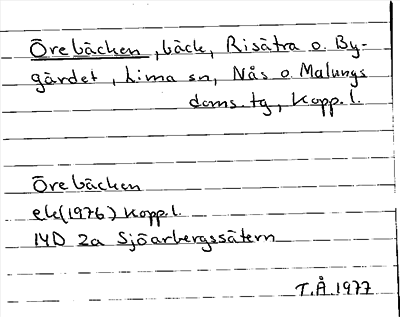 Örebäcken, bäck, Risätra o. By-
gärdet, Lima sn, Nås o. Malungs
doms. tg, Kopp. l.
Örebäcken
ek(1976) Kopp l.
14D 2a Sjöarbergssätern
T.Å.1977